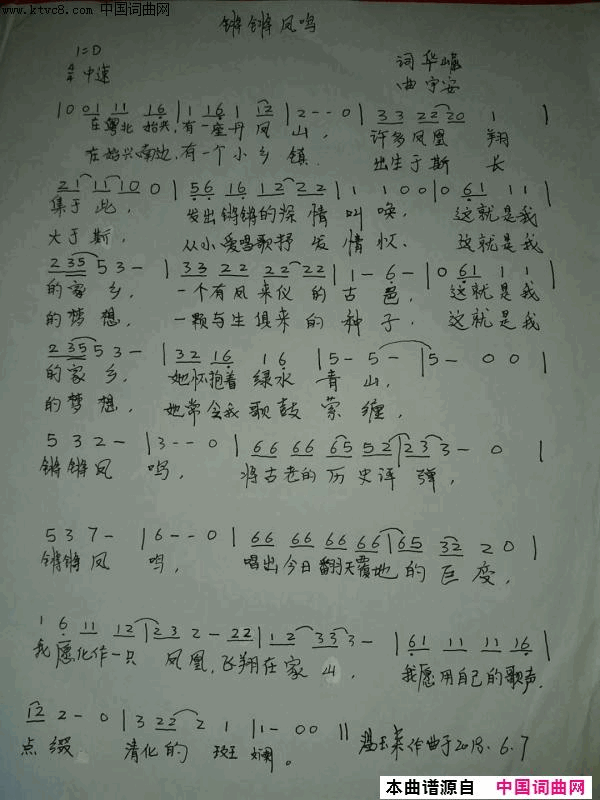 www.ktvc8.com 中国词曲网
锵锵凤鸣
1=D
4/4 中速 词 华嵘
曲 宇安
|0 01 11 16|1 16 1 12|2--0|33 22 20 1|
在粤北抬头,有一座丹凤山, 许多凤凰翔
在始兴南边,有一个小乡镇. 出生于斯长
21 11 10 0|56 16 12 22|1 100|0 61 11|
集于此, 发出锵锵的深情叫唤, 这就是我
大于斯, 从小爱唱歌抒发情怀, 这就是我
235 53-|33 22 22 22|1-6-|0 61 11|
的家乡, 一个有凤来仪的古邑, 这就是我
的梦想, 一颗与生俱来的种子, 这就是我
235 53-|32 16 16|5-5-|5-00|
的家乡, 她怀抱着绿水青山,
的梦想, 她常令我歌鼓萦缠,
532-|3--0|66 66 65 52|23 3-0|
锵锵凤鸣, 将古老的历史评弹,
537-|6--0|66 66 66 66|65 32 20|
锵锵凤鸣, 唱出今日翻天覆地的巨变,
16 11 12|23 2-22|12 333-|61 11 11 16|
我愿化作一只凤凰,飞翔在家山, 我愿用自己的歌声,
12 2-0|3 22 2 1|1-00||
点缀 清化的斑斓。 作曲于2018.6.7
本曲谱源自 中国词曲网